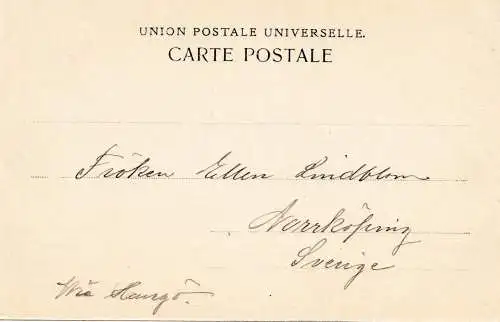 UNION POSTALE UNIVERSELLE.
CARTE POSTALE
Fröken Ellen Lindblom
Norrköping
Sverige
Wia Hangö.